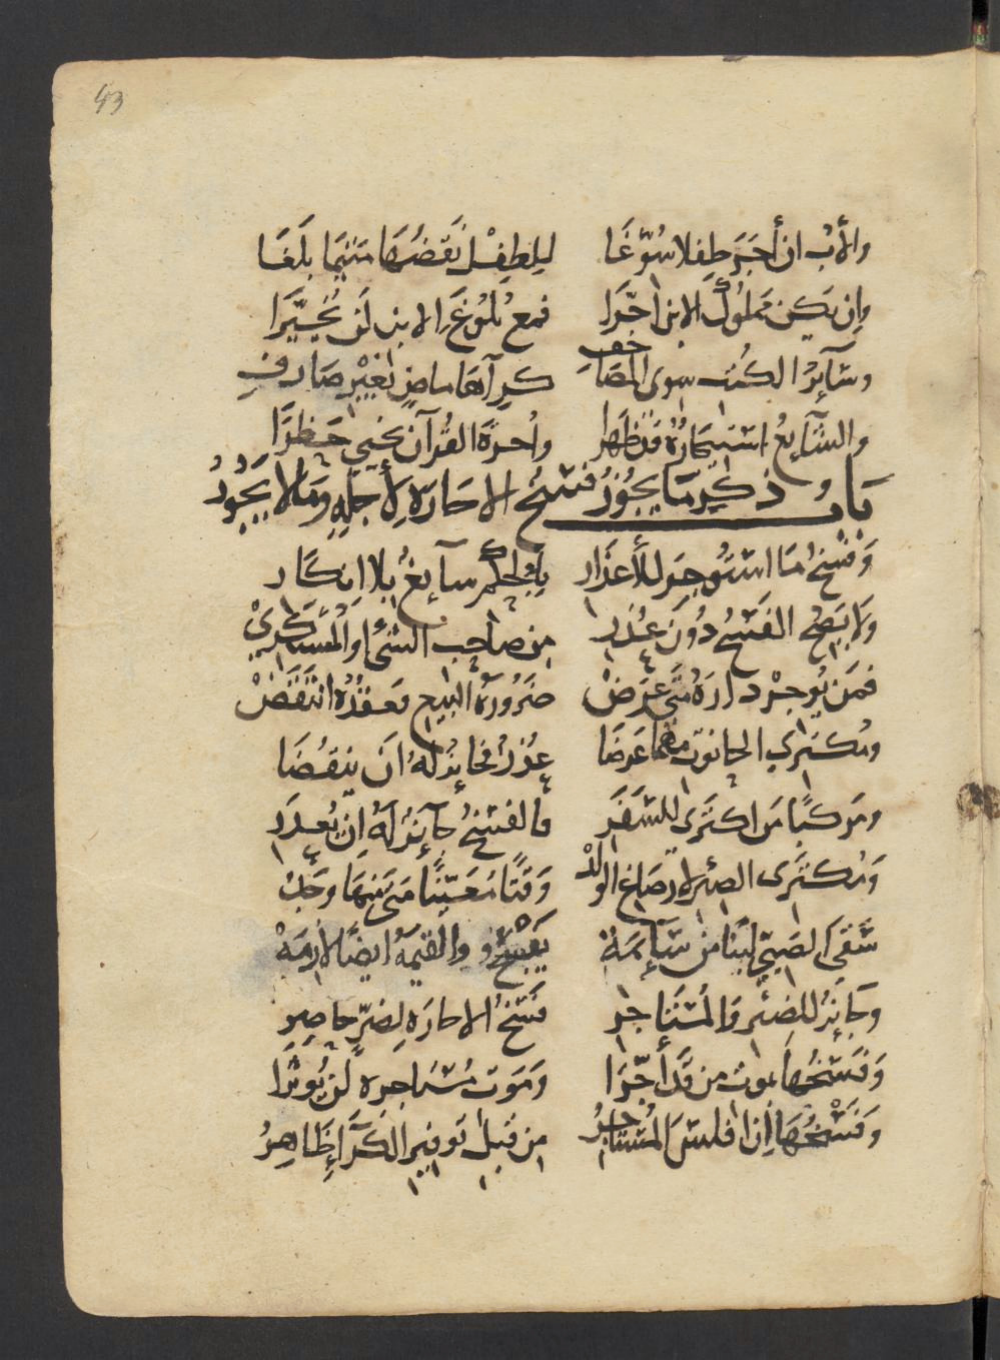 43
والأب ان أجبر طفلا سوغا للطفل نقضها متيما بلغا
وان يكن مملوك الابن اجرا فمع بلوغ الابن لن يخيرا
وسآئر الكتب سوى المصاحف كرآها ماض بغير صارف
والشآيع استيجاره قد ظهرا وأجرة القرآن يحيى حظرا
باب ذكر ما يجوز فسخ الاجارة لأجله وما لا يجوز
وفسخ ما استوجر للأعذار بالحكم سآيغ بلا انكار
ولا يصح الفسخ دون عذر من صاحب الشئ او المستكري
فمن يوجر داره متى عرض ضرورة البيع فعقده انتقض
ومكتري الحانوت مهما عرضا عذر فجائز له ان ينقضا
ومركبا من اكترى للسفر فالفسخ جآئز له ان يعذر
ومكترى الضئر لارضاع الولد وقتا معينا متى فيها وجد
سقى الصبي لبنا من سآئمة يفسخ والقيمة ايضا لازمة
وجائز للضئر والمستاجر فسخ الاجارة لضر حاضر
وفسخها بموت من قد أجرا وموت مستاجره لن يوثرا
وفسخها اذا فلس المستاجر من قبل توفير الكرآ ظاهر